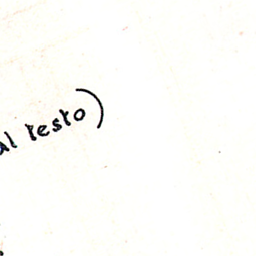 al testo)